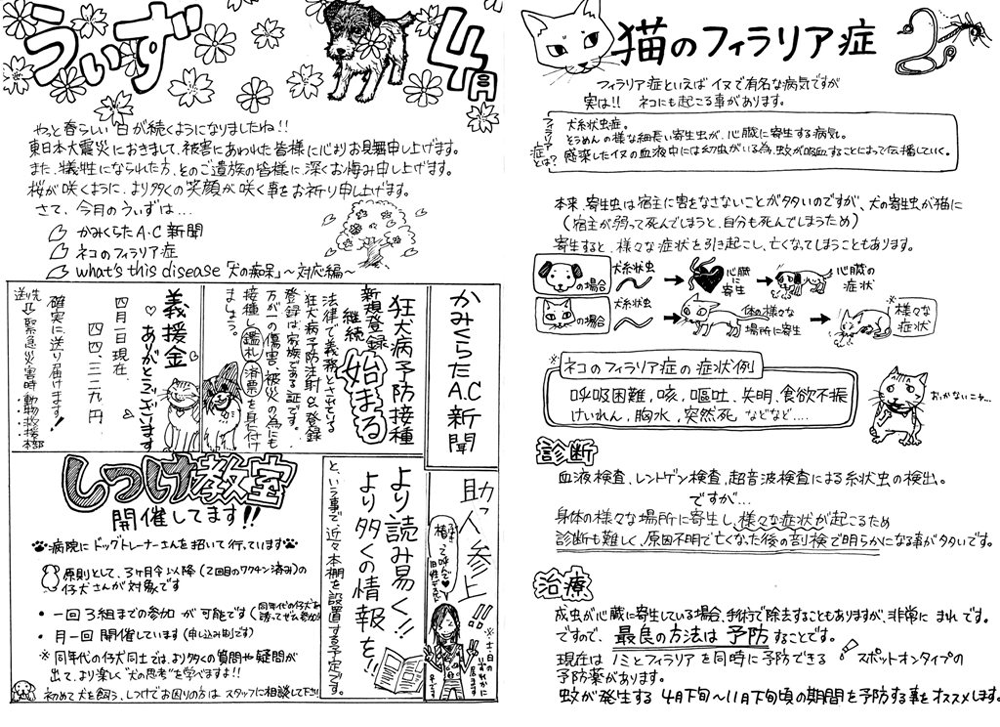 うぃず
4月
やっと春らしい日が続くようになりましたね!!
東日本大震災におきまして、被害にあわれた皆様に心よりお見舞申し上げます。
また、犠牲になられた方、そのご遺族の皆様に、深くお悔み申し上げます。
桜が咲くように、より多くの笑顔が咲く事をお祈り申し上げます。
さて、今月のうぃずは…
かみくらたA・C新聞
ネコのフィラリア症
what's this disease「犬の痴呆」～対応編～
かみくらたA.C新聞
狂犬病予防接種
新規登録
継続
始まる
法律で義務とされている
狂犬病予防注射&登録
登録は家族である証です。
万が一の傷害、被災の為にも
接種し鑑札 済票を身に付け
ましょう。
義援金
ありがとうございます
四月一日現在、
四四、三二九円
確実に送り届けます!
送先⇨緊急災害時動物救援本部
助っ人参上!!
より読み易く!!
より多くの情報を!!
と、いう事で、近々本棚を設置する予定です。
しつけ教室
開催してます!!
病院にドッグトレーナーさんを招いて行っています
原則として、3ヶ月令以降(2回目のワクチン済み)の
仔犬さんが対象です
・一回3組までの参加が可能です
・月一回開催しています(申し込み制です)
※同年代の仔犬同士では、より多くの質問や疑問が
出て、より楽しく"犬の思考"を学べますよ!!
初めて犬を飼う、しつけでお困りの方はスタッフに相談して下さい
猫のフィラリア症
フィラリア症といえばイヌで有名な病気ですが
実は!! ネコにも起こる事があります。
フィラリア症とは?
犬糸状虫症。
そうめんの様な細長い寄生虫が、心臓に寄生する病気。
感染したイヌの血液中には幼虫がいる為、蚊が吸血することによって伝播していく。
本来、寄生虫は宿主に害をなさないことが多いのですが、犬の寄生虫が猫に
(宿主が弱って死んでしまうと、自分も死んでしまうため)
寄生すると、様々な症状を引き起こし、亡くなってしまうこともあります。
の場合
犬糸状虫
心臓に寄生
心臓の症状
の場合
犬糸状虫
体の様々な場所に寄生
※様々な症状
※ネコのフィラリア症の症状例
呼吸困難、咳、嘔吐、失明、食欲不振
けいれん、胸水、突然死 などなど....
おっかないニャ...
診断
血液検査、レントゲン検査、超音波検査による糸状虫の検出。
ですが…
身体の様々な場所に寄生し、様々な症状が起こるため
診断も難しく、原因不明で亡くなった後の剖検で明らかになる事が多いです。
治療
成虫が心臓に寄生している場合、手術で除去することもありますが、非常にまれです。
ですので、最良の方法は予防することです。
現在はノミとフィラリアを同時に予防できるスポットオンタイプの
予防薬があります。
蚊が発生する4月下旬～11月下旬頃の期間を予防する事をオススメします。